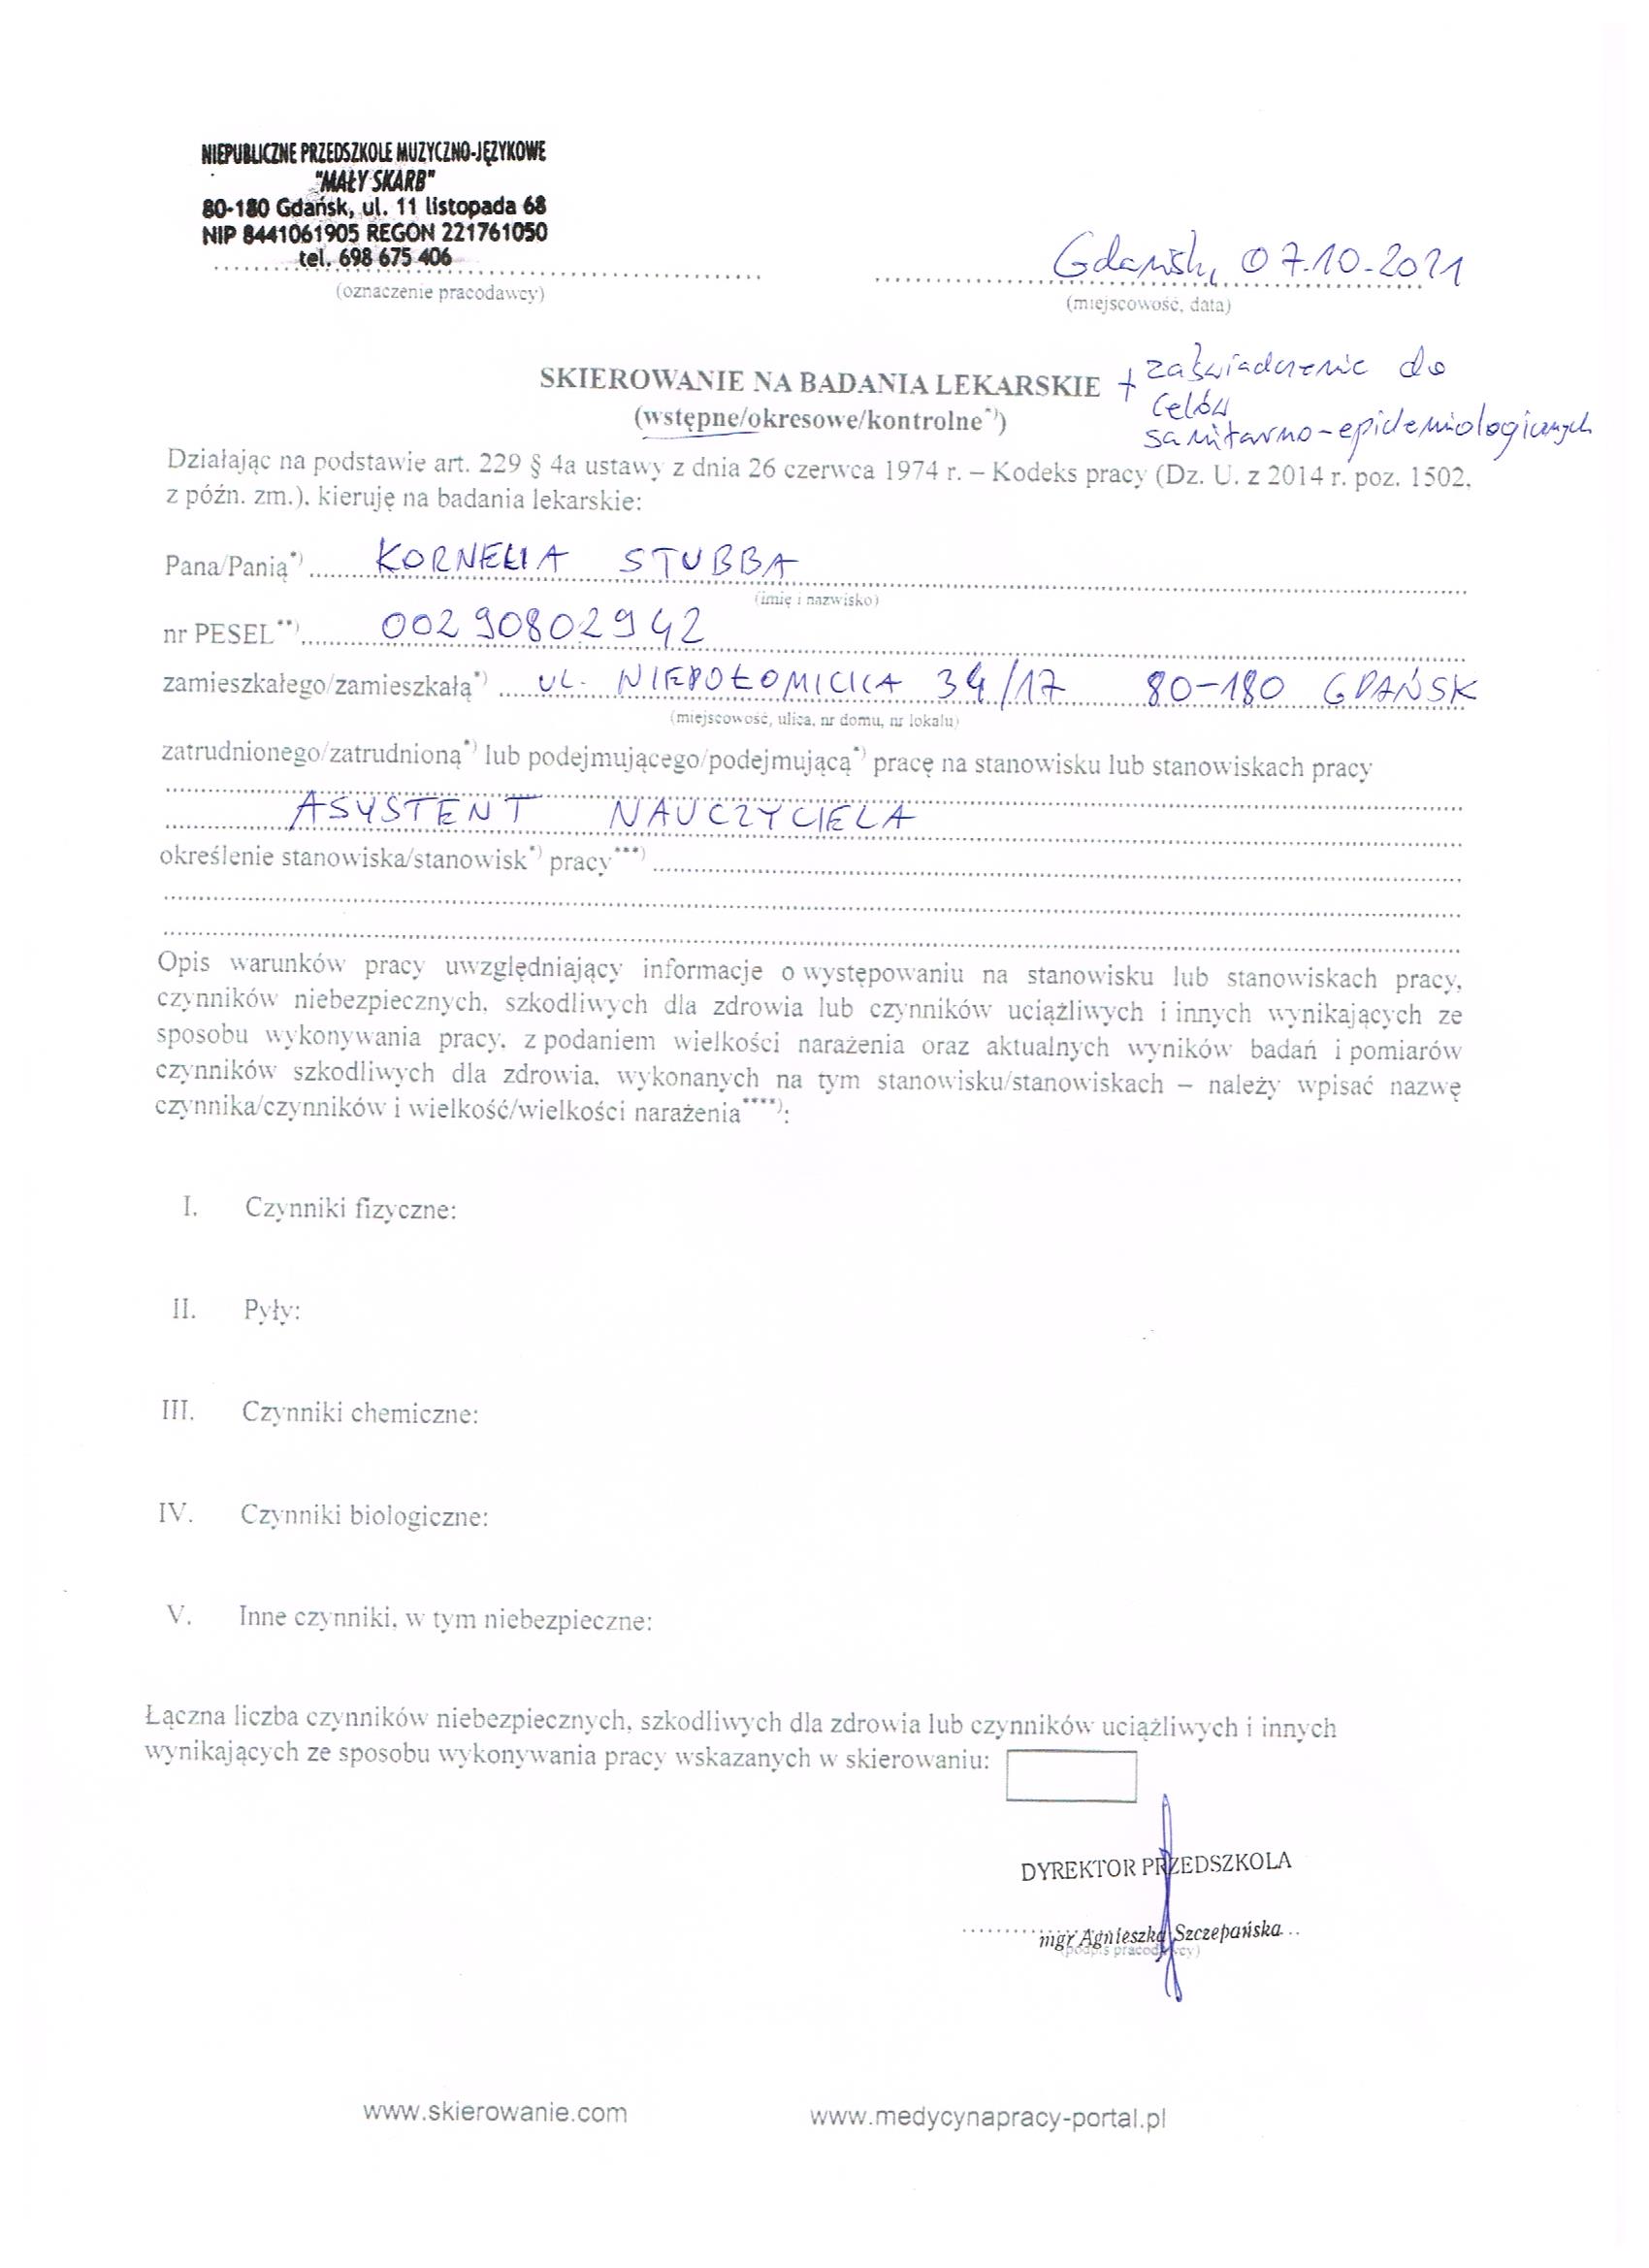 NIEPUBLICZNE PRZEDSZKOLE MUZYCZNO-JĘZYKOWE
"MAŁY SKARB"
80-180 Gdańsk, ul. 11 listopada 68
NIP 8441061905 REGON 221761050
tel. 698 675 406
(oznaczenie pracodawcy)
Gdańsk, 07.10.2021
(miejscowość, data)
SKIEROWANIE NA BADANIA LEKARSKIE + zaświadczenie do
celów
(wstępne/okresowe/kontrolne*)) sanitarno-epidemiologicznych
Działając na podstawie art. 229 § 4a ustawy z dnia 26 czerwca 1974 r. – Kodeks pracy (Dz. U. z 2014 r. poz. 1502,
z późn. zm.), kieruję na badania lekarskie:
Pana/Panią*) KORNELIA STUBBA
(imię i nazwisko)
nr PESEL**) 00290802942
zamieszkałego/zamieszkałą*) UL. NIEPOŁOMICKA 34/17 80-180 GDAŃSK
(miejscowość, ulica, nr domu, nr lokalu)
zatrudnionego/zatrudnioną*) lub podejmującego/podejmującą*) pracę na stanowisku lub stanowiskach pracy
ASYSTENT NAUCZYCIELA
określenie stanowiska/stanowisk*) pracy***)
Opis warunków pracy uwzględniający informacje o występowaniu na stanowisku lub stanowiskach pracy,
czynników niebezpiecznych, szkodliwych dla zdrowia lub czynników uciążliwych i innych wynikających ze
sposobu wykonywania pracy, z podaniem wielkości narażenia oraz aktualnych wyników badań i pomiarów
czynników szkodliwych dla zdrowia, wykonanych na tym stanowisku/stanowiskach – należy wpisać nazwę
czynnika/czynników i wielkość/wielkości narażenia****):
I. Czynniki fizyczne:
II. Pyły:
III. Czynniki chemiczne:
IV. Czynniki biologiczne:
V. Inne czynniki, w tym niebezpieczne:
Łączna liczba czynników niebezpiecznych, szkodliwych dla zdrowia lub czynników uciążliwych i innych
wynikających ze sposobu wykonywania pracy wskazanych w skierowaniu:
DYREKTOR PRZEDSZKOLA
mgr Agnieszka Szczepańska
(podpis pracodawcy)
www.skierowanie.com www.medycynapracy-portal.pl